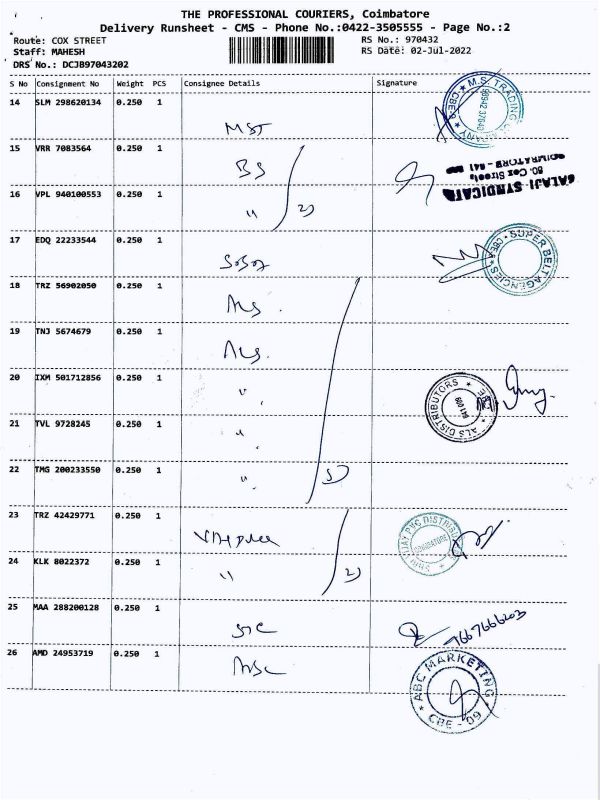 THE PROFESSIONAL COURIERS, Coimbatore
Delivery Runsheet - CMS - Phone No.:0422-3505555 - Page No.:2
Route: COX STREET RS No.: 970432
Staff: MAHESH RS Date: 02-Jul-2022
DRS No.: DCJB97043202
S No Consignment No Weight PCS Consignee Details Signature
14 SLM 298620134 0.250 1
MST
M.S. TRADING COMPANY CBE-9
98942 37640
15 VRR 7083564 0.250 1
BS
BALAJI SYNDICATE
80, Cox Street
COIMBATORE - 641
16 VPL 940100553 0.250 1
" 2)
17 EDQ 22233544 0.250 1
SUPER BELT AGENCIES CBE
18 TRZ 56902050 0.250 1
ALS.
19 TNJ 5674679 0.250 1
ALS.
20 IXM 501712856 0.250 1
"
ALS DISTRIBUTORS CBE
641 009
21 TVL 9728245 0.250 1
"
22 TMG 200233550 0.250 1
" 5)
23 TRZ 42429771 0.250 1
SHRI VIJAY PVC DISTRIBUTORS
COIMBATORE
24 KLK 8022372 0.250 1
" 2)
25 MAA 288200128 0.250 1
STC
7667666203
26 AMD 24953719 0.250 1
ABC
ABC MARKETING
CBE - 09